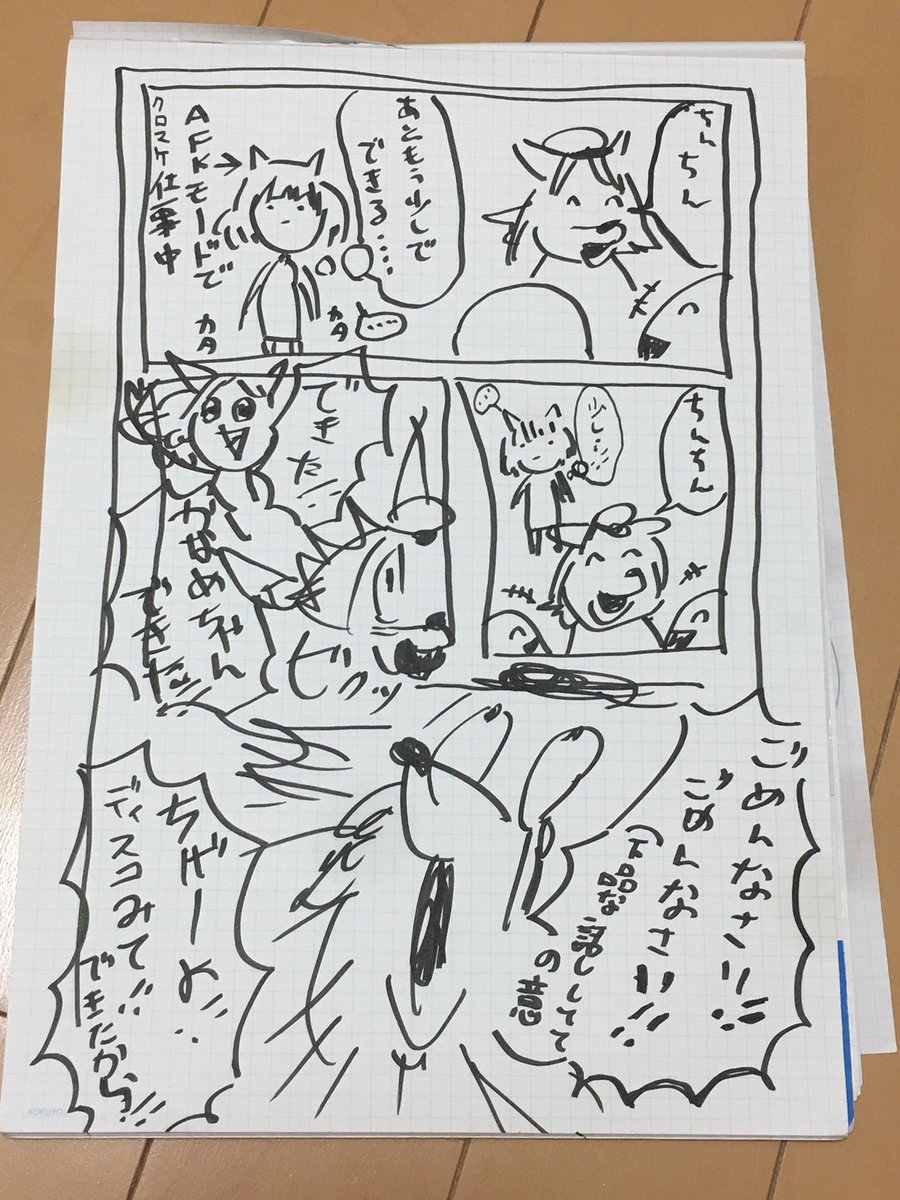 ちんちん
あともう少しで
できる....
AFKモードで
クロマケ仕事中
カタ
カタ
....
ちんちん
少し...
...
できた!!
かなめちゃん
できた!!
ビクッ
ごめんなさい!!
ごめんなさい!!
(下品な話ししてて
の意)
ちげーよ!!
ディスコみて!!
できたから!!
KOKUYO